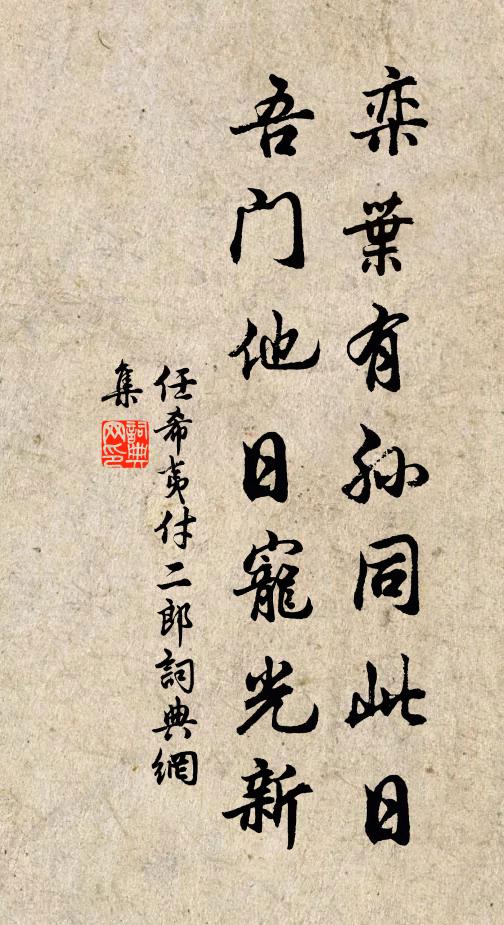 奕葉有孙同此日
吾门他日寵光新
任希夷付二郎詞典網
集
詞典
网印